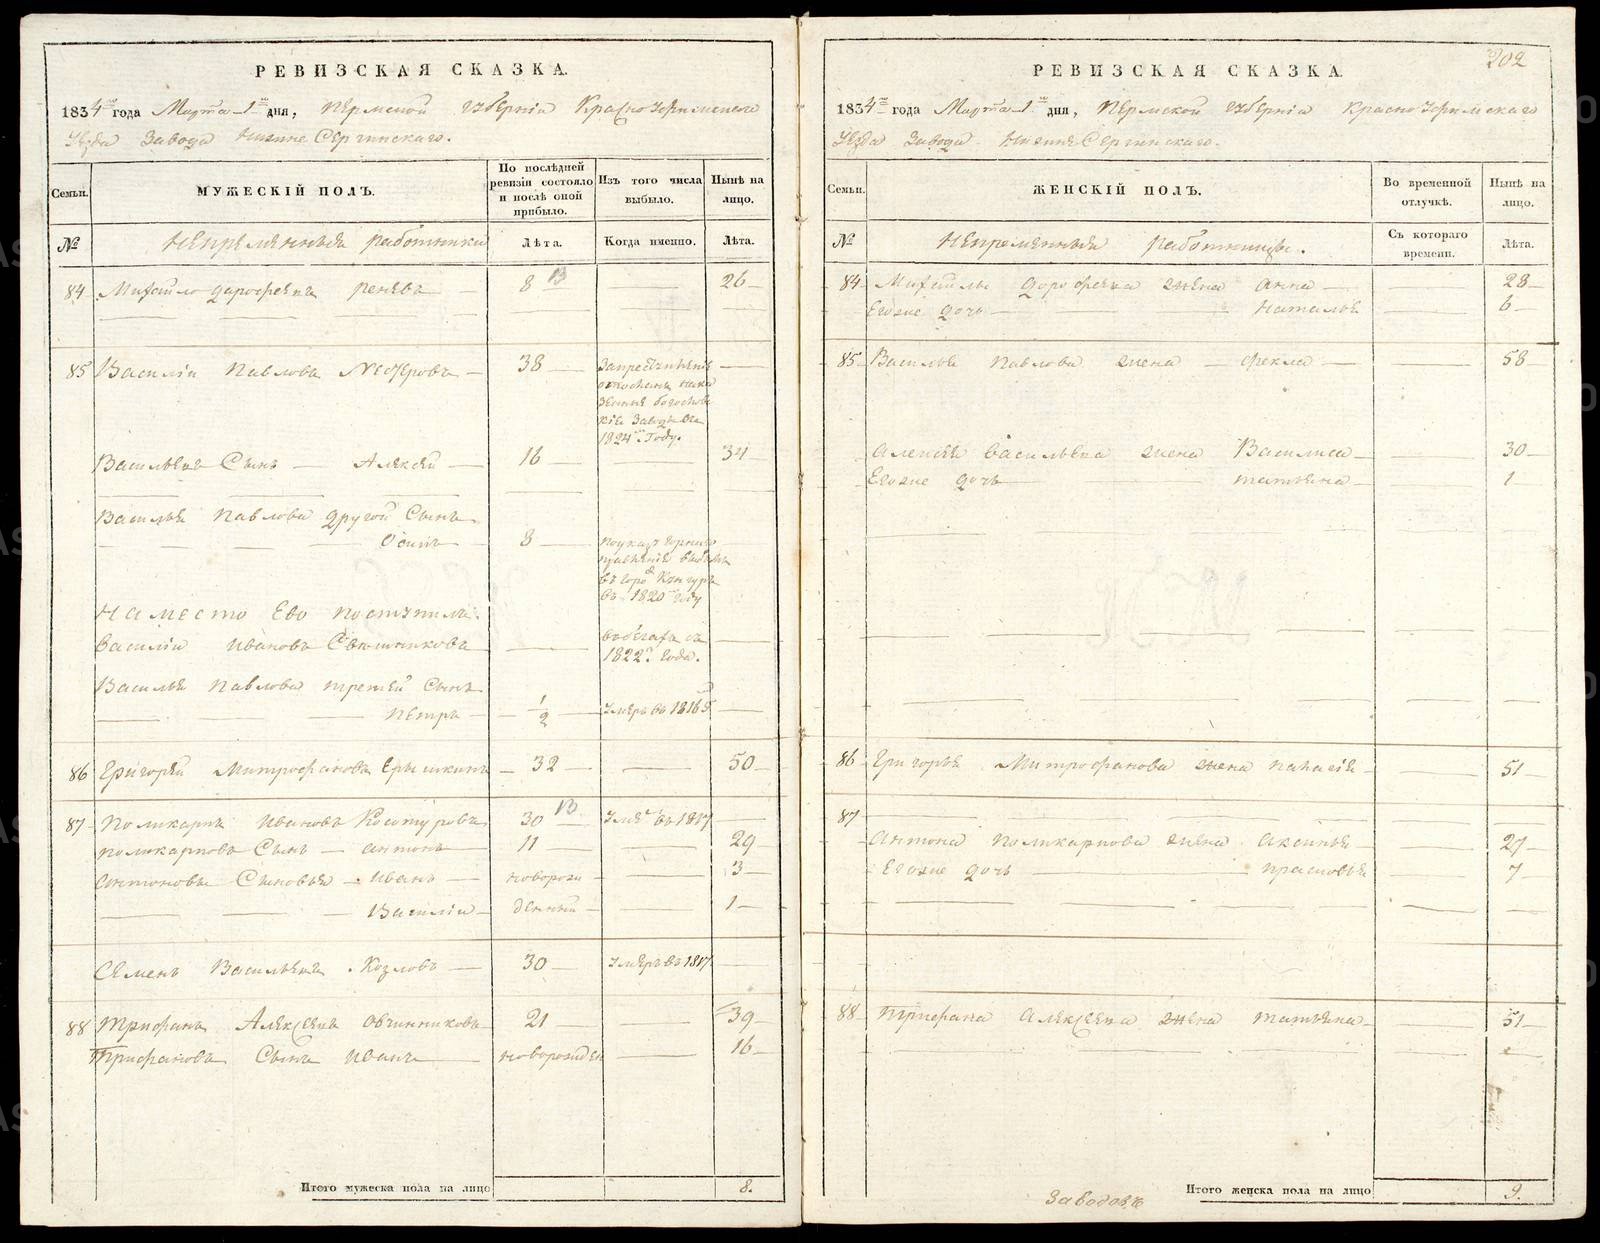 РЕВИЗСКАЯ СКАЗКА.
1834го года Марта 1го дня, Пермской губернiи Красноуфимскаго
Уезда Завода Нижне Сергинскаго.
Семьи. МУЖЕСКIЙ ПОЛЪ. По послѣдней ревизiи состояло и послѣ оной прибыло. Изъ того числа выбыло. Нынѣ на лицо.
№ Непременныя работники Лѣта. Когда именно. Лѣта.
84 Михайло Дорофеевъ 8 — 26
85 Василiй Павловъ 38
1824го Году.
Васильевъ Сынъ — Алексей — 16 — 34
Василья Павлова другой Сынъ
Осипъ 8
въ 1820 году
На место Его поступилъ
Василiй Ивановъ
1822го Года.
Василья Павлова третей Сынъ
Петръ — 1/2 — Умеръ въ 1816
86 Григорей Митрофановъ — 32 — 50
87 Поликарпъ Ивановъ 30 Умеръ въ 1817
Поликарповъ Сынъ — Антонъ 11 — 29
Антоновы Сыновья — Иванъ — новорож — 3
Василiй — денный — 1
Семенъ Васильевъ Козловъ — 30 — Умеръ въ 1817
88 Трифонъ Алексеевъ Овчинниковъ 21 — 39
Трифоновъ Сынъ Иванъ — новорожден — 16
Итого мужеска пола на лицо 8.
202
РЕВИЗСКАЯ СКАЗКА.
1834го года Марта 1го дня, Пермской губернiи Красноуфимскаго
Уезда Завода Нижне Сергинскаго.
Семьи. ЖЕНСКIЙ ПОЛЪ. Во временной отлучкѣ. Нынѣ на лицо.
№ Непременныя работницы. Съ котораго времени. Лѣта.
84 Михайлы Дорофеева жена Анна — 28
Егоже дочь — Наталья 6
85 Василья Павлова жена — Фекла — 58
Алексея Васильева жена Василиса — 30
Егоже дочь — Татьяна — 1
86 Григорья Митрофанова жена — 51
87
Антона Поликарпова жена Аксинья — 27
Егоже дочь — Прасковья 7
88 Трифона Алексеева жена Татьяна — 51
Итого женска пола на лицо 9.